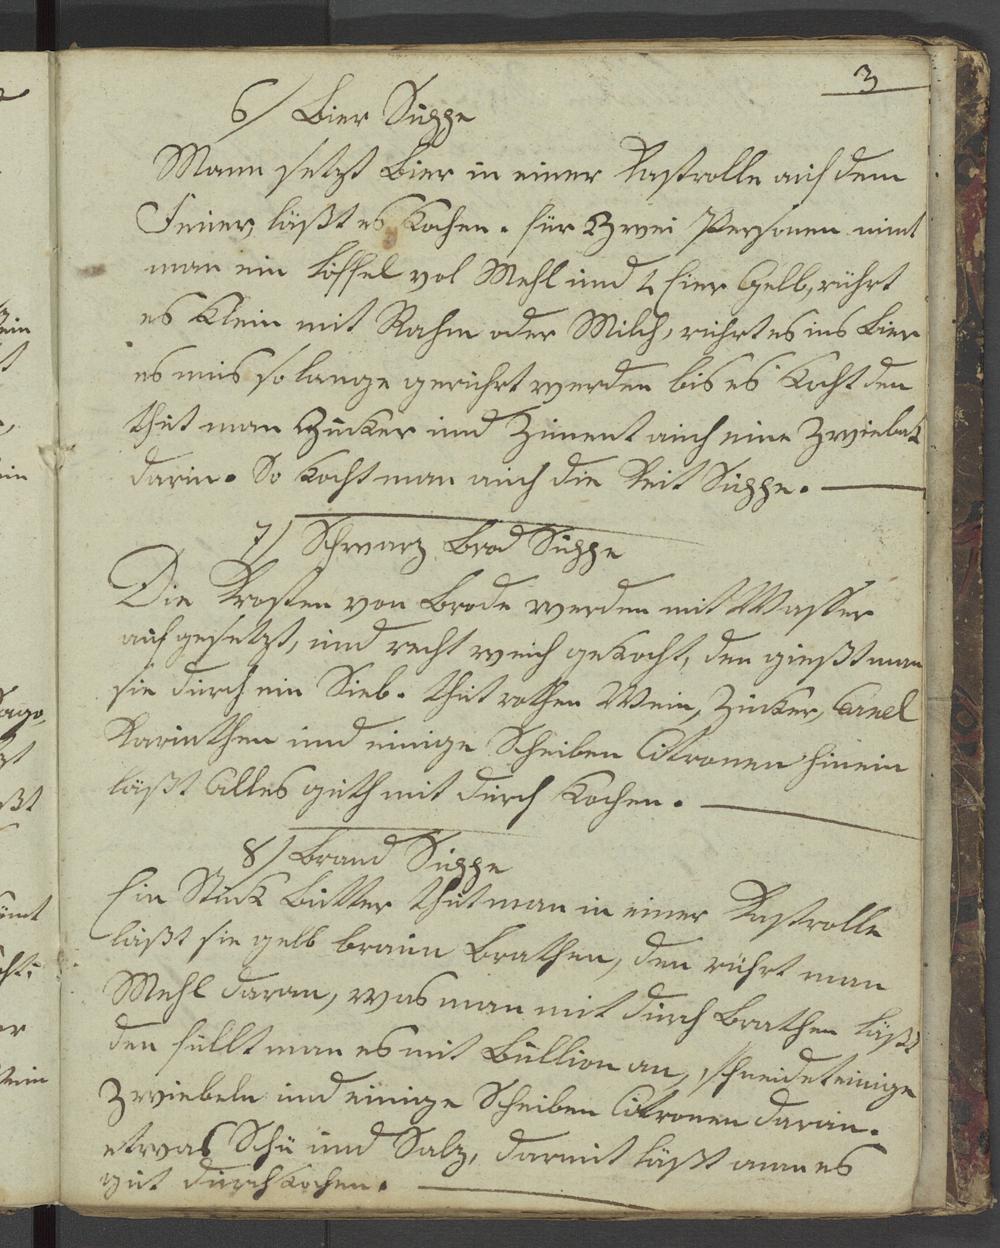 3
6/ Bier Suppe
Mann setzt Bier in einer Kastrolle auf dem
Feuer, läßt es Kochen. für Zwei Personen nimt
man ein löffel vol Mehl und 2 Eier Gelb, rührt
es Klein mit Rahm oder Milch, rührt es ins Bier
es muis so lange gerührt werden bis es Kocht den
thut man Zucker und Ziment auch eine Zwiebak
darin. So Kocht man auch die Suppe.
7/ Schwarz Brod Suppe
Die Krosten von Brode werden mit Wasser
auf gesetzt, und recht weich gekocht, den gießt man
sie durch ein Sieb. thut rothen Wein, Zucker, Canel
Karinthen und einige Scheiben Citronen hinein
läßt Alles guth mit durch Kochen.
8/ Brand Suppe
Ein Stück Butter thut man in einer Kastrolle
läßt sie gelb braun Brathen, den rührt man
Mehl daran, was man mit durch Brathen läßt
den füllt man es mit Bullion an, schneidet einige
Zwiebeln und einige Scheiben Citronen daran.
etwas Schü und Salz, darmit läßt mann es
gut durchkochen.